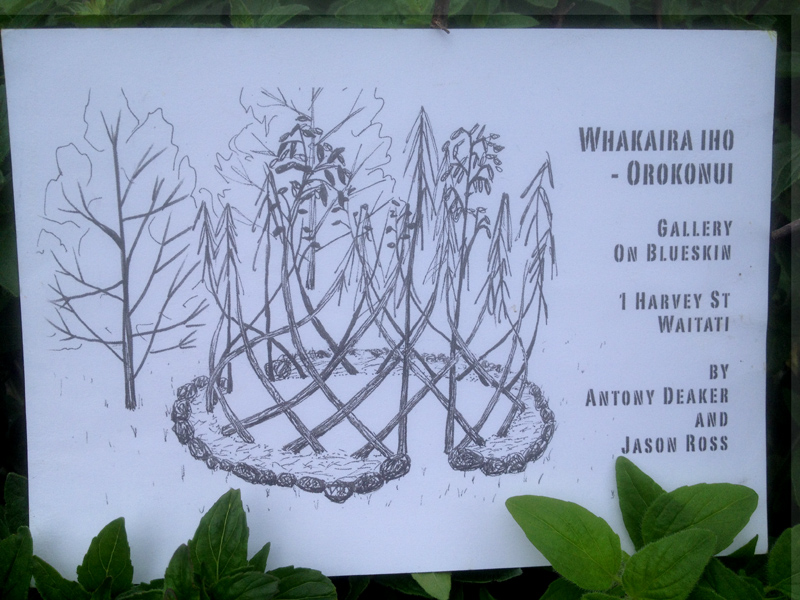 Whakaira iho
- Orokonui
Gallery
On Blueskin
1 Harvey St
Waitati
by
Antony Deaker
and
Jason Ross